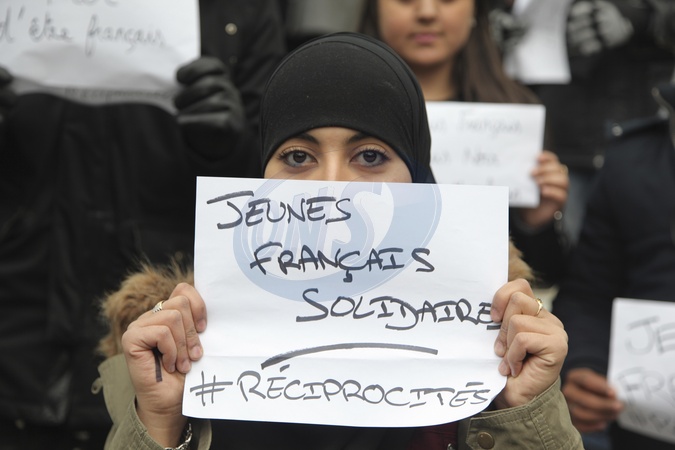 d'être français
JEUNES
FRANÇAIS
SOLIDAIRES
#RÉCIPROCITÉS
JE